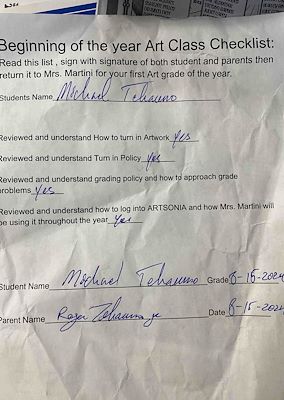 Beginning of the year Art Class Checklist:
Read this list , sign with signature of both student and parents then
return it to Mrs. Martini for your first Art grade of the year.
Students Name Michael
Reviewed and understand How to turn in Artwork yes
Reviewed and understand Turn in Policy yes
Reviewed and understand grading policy and how to approach grade
problems yes
Reviewed and understand how to log into ARTSONIA and how Mrs. Martini will
be using it throughout the year yes
Student Name Michael Grade 8-16-2024
Parent Name Roger Jr Date 8-15-2024